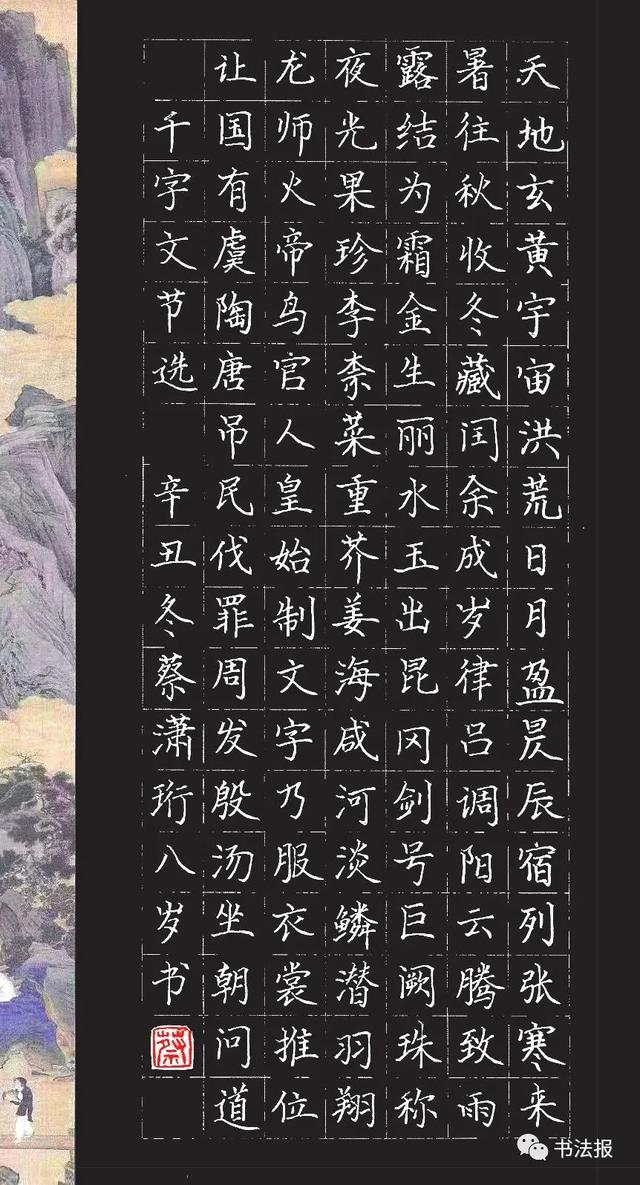 天地玄黄宇宙洪荒日月盈昃辰宿列张寒来
暑往秋收冬藏闰余成岁律吕调阳云腾致雨
露结为霜金生丽水玉出昆冈剑号巨阙珠称
夜光果珍李柰菜重芥姜海咸河淡鳞潜羽翔
龙师火帝鸟官人皇始制文字乃服衣裳推位
让国有虞陶唐吊民伐罪周发殷汤坐朝问道
千字文节选 辛丑冬蔡潇珩八岁书
蔡
书法报